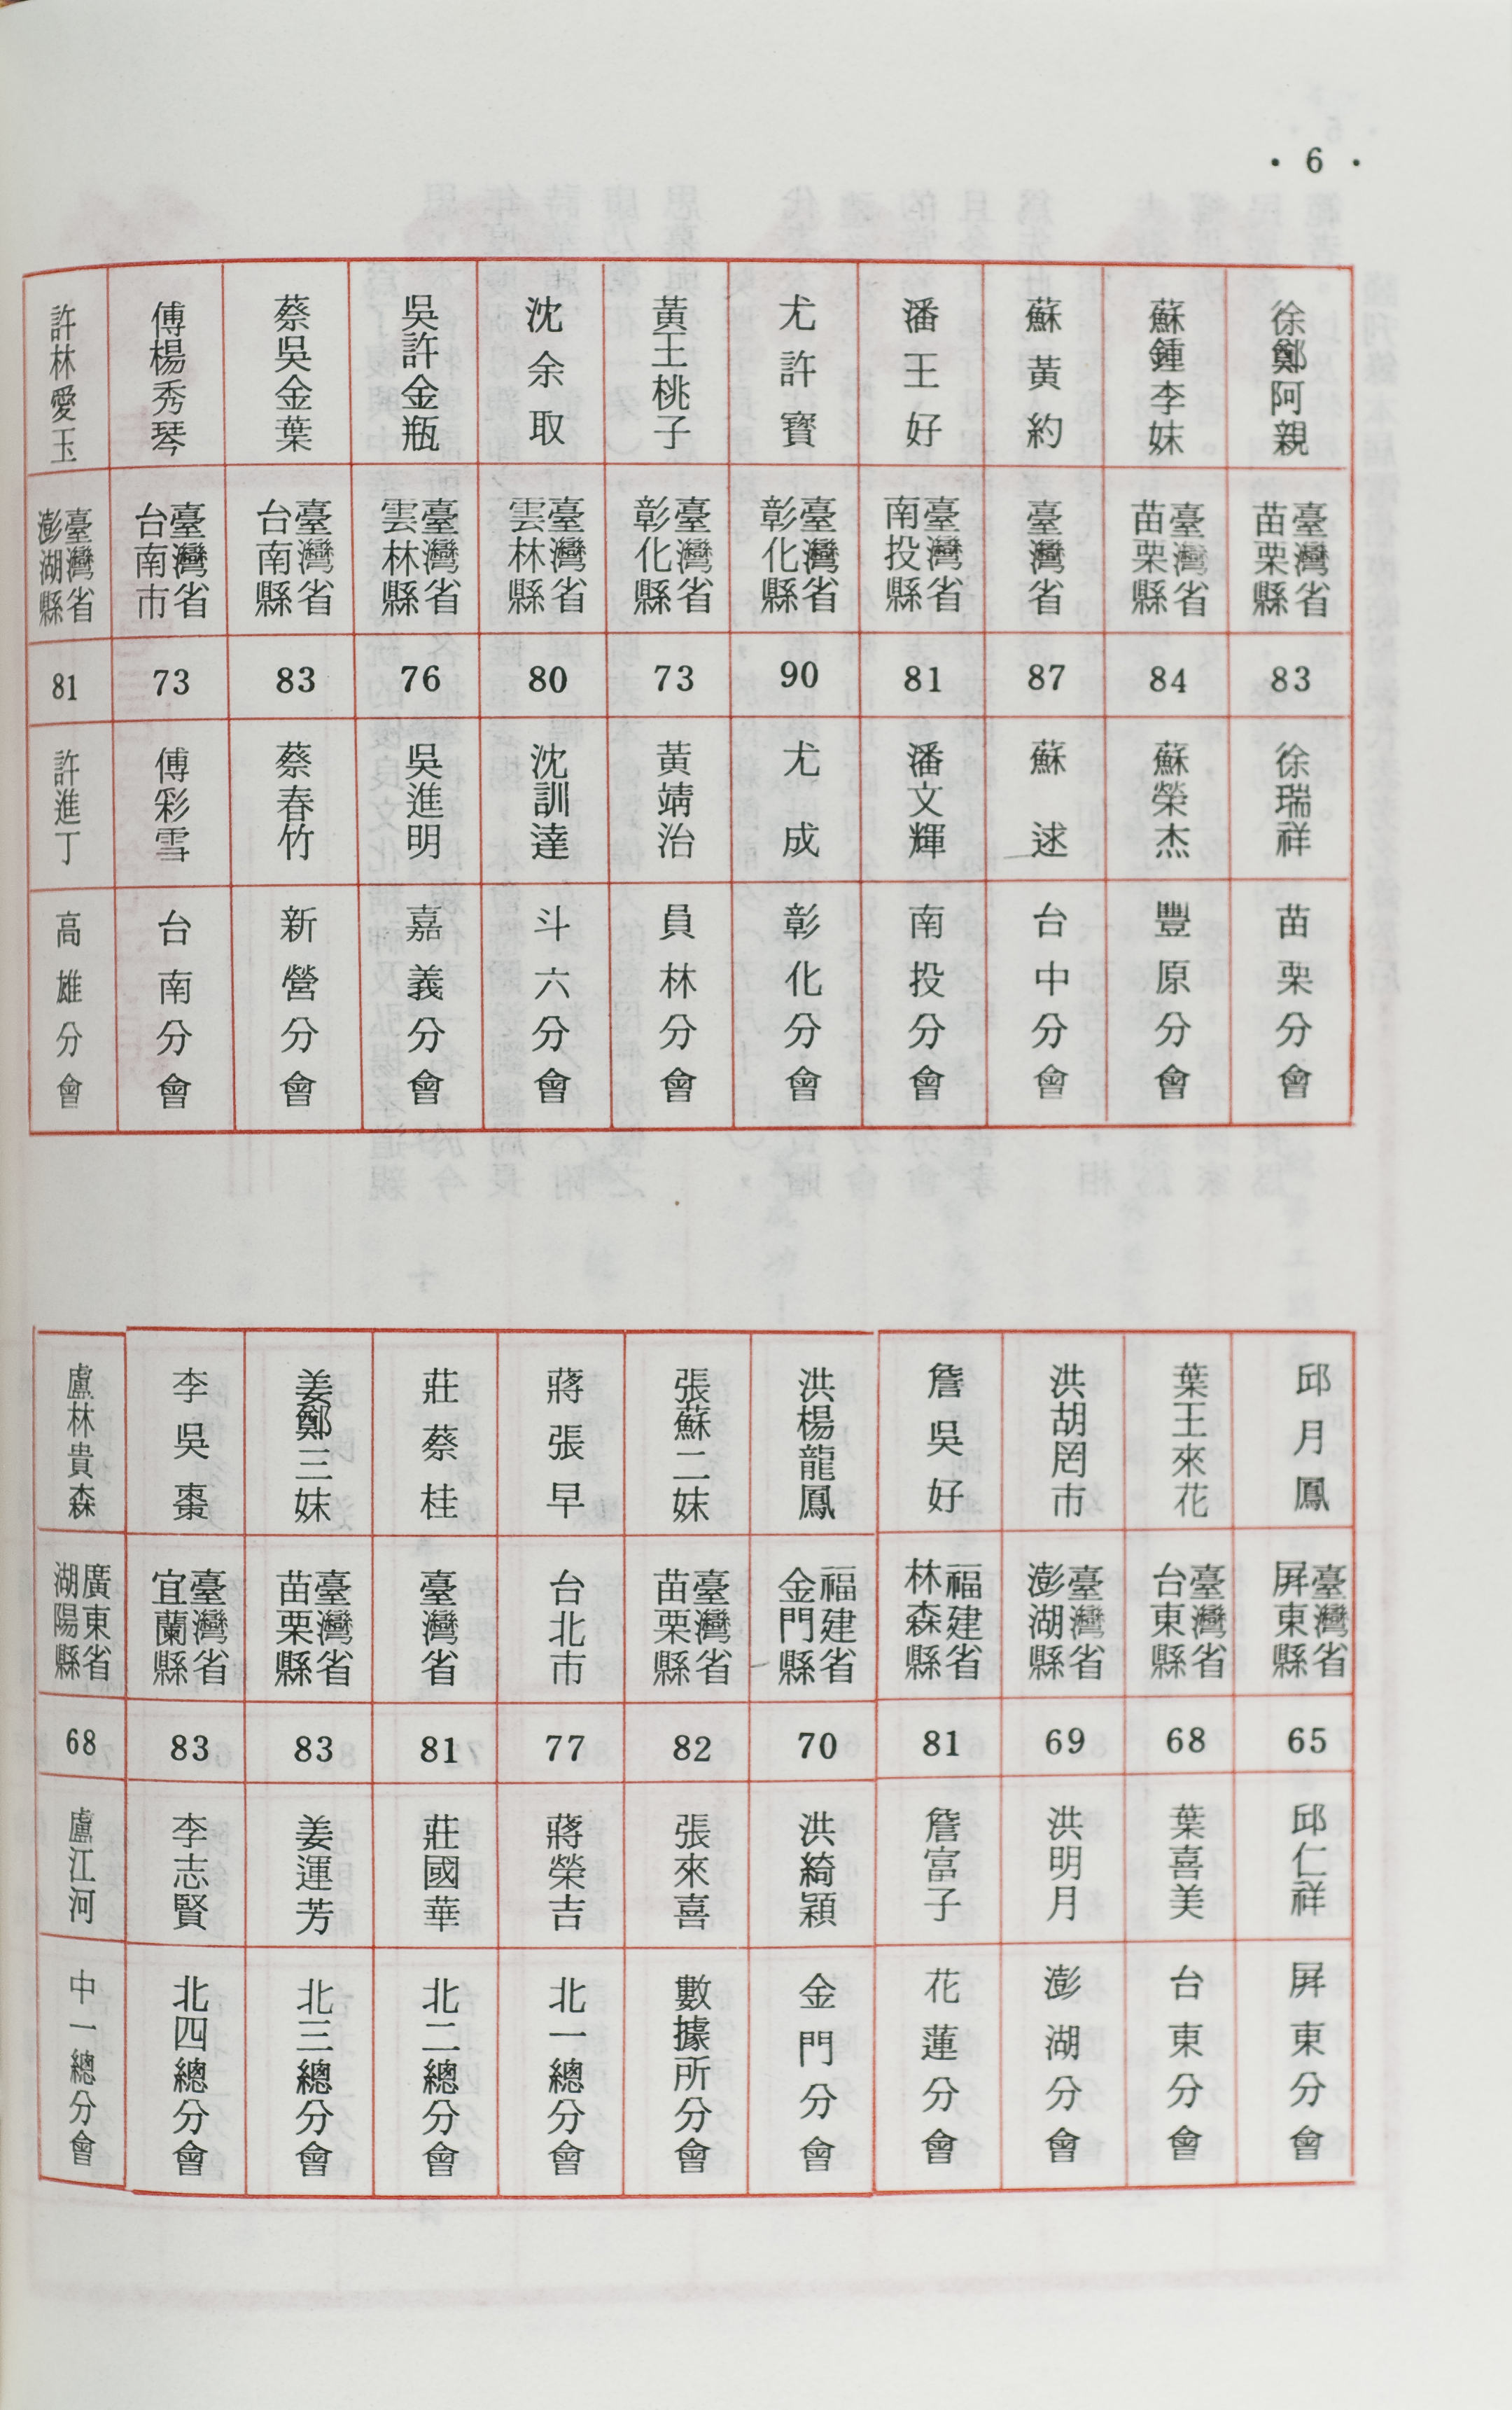 • 6 •
徐鄭阿親 臺灣省苗栗縣 83 徐瑞祥 苗栗分會
蘇鍾李妹 臺灣省苗栗縣 84 蘇榮杰 豐原分會
蘇黃約 臺灣省 87 蘇逑 台中分會
潘王好 臺灣省南投縣 81 潘文輝 南投分會
尤許寶 臺灣省彰化縣 90 尤成 彰化分會
黃王桃子 臺灣省彰化縣 73 黃靖治 員林分會
沈余取 臺灣省雲林縣 80 沈訓達 斗六分會
吳許金瓶 臺灣省雲林縣 76 吳進明 嘉義分會
蔡吳金葉 臺灣省台南縣 83 蔡春竹 新營分會
傅楊秀琴 臺灣省台南市 73 傅彩雪 台南分會
許林愛玉 臺灣省澎湖縣 81 許進丁 高雄分會
邱月鳳 臺灣省屏東縣 65 邱仁祥 屏東分會
葉王來花 臺灣省台東縣 68 葉喜美 台東分會
洪胡罔市 臺灣省澎湖縣 69 洪明月 澎湖分會
詹吳好 福建省林森縣 81 詹富子 花蓮分會
洪楊龍鳳 福建省金門縣 70 洪綺穎 金門分會
張蘇二妹 臺灣省苗栗縣 82 張來喜 數據所分會
蔣張早 台北市 77 蔣榮吉 北一總分會
莊蔡桂 臺灣省 81 莊國華 北二總分會
姜鄭三妹 臺灣省苗栗縣 83 姜運芳 北三總分會
李吳棗 臺灣省宜蘭縣 83 李志賢 北四總分會
盧林貴森 廣東省湖陽縣 68 盧江河 中一總分會